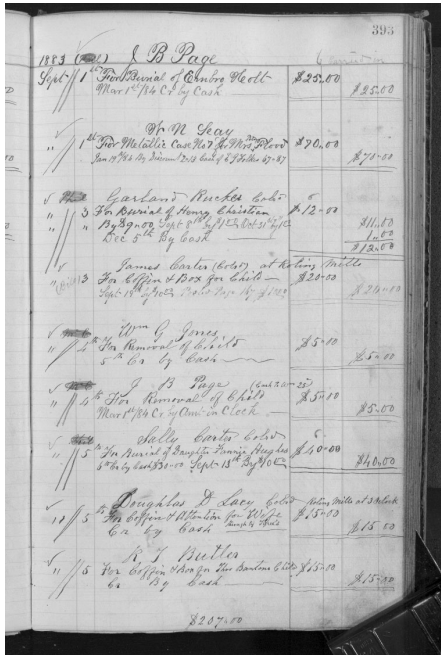 393
1883 J B Page
Sept 1st For Burial of Embro Holt $25.00
Mar 1st/84 Cr by Cash $25.00
W N Seay
1st For Metallic Case No 7 for Mrs Flood $70.00
$70.00
Garland Rucker Cold
" 3 For Burial of Henry Christian $12.00
" By $9.00 Sept 8th Oct 31st $11.00
Dec 5th By Cash 1.00
$12.00
James Carter (Cold) at Roling Mills
" 3 For Coffin & Box for Child $20.00
Sept 18th by $20.00
Wm G Jones
" 4th For Removal of Child $5.00
5th Cr by Cash $5.00
J B Page
" 4th For Removal of Child $5.00
Mar 1st/84 Cr by Amt in Clock $5.00
Sally Carter Cold
" 5th For Burial of Daughter Fannie Hughes $40.00
6th Cr by Cash $30.00 Sept 13th By $10 $40.00
Doughlas D Lacy Cold Roling Mills at 3 Oclock
" 5th For Coffin & Attention for Wife $15.00
Cr by Cash $15.00
R T Butler
" 5 For Coffin & Box for Child $15.00
Cr By Cash $15.00
$207.00